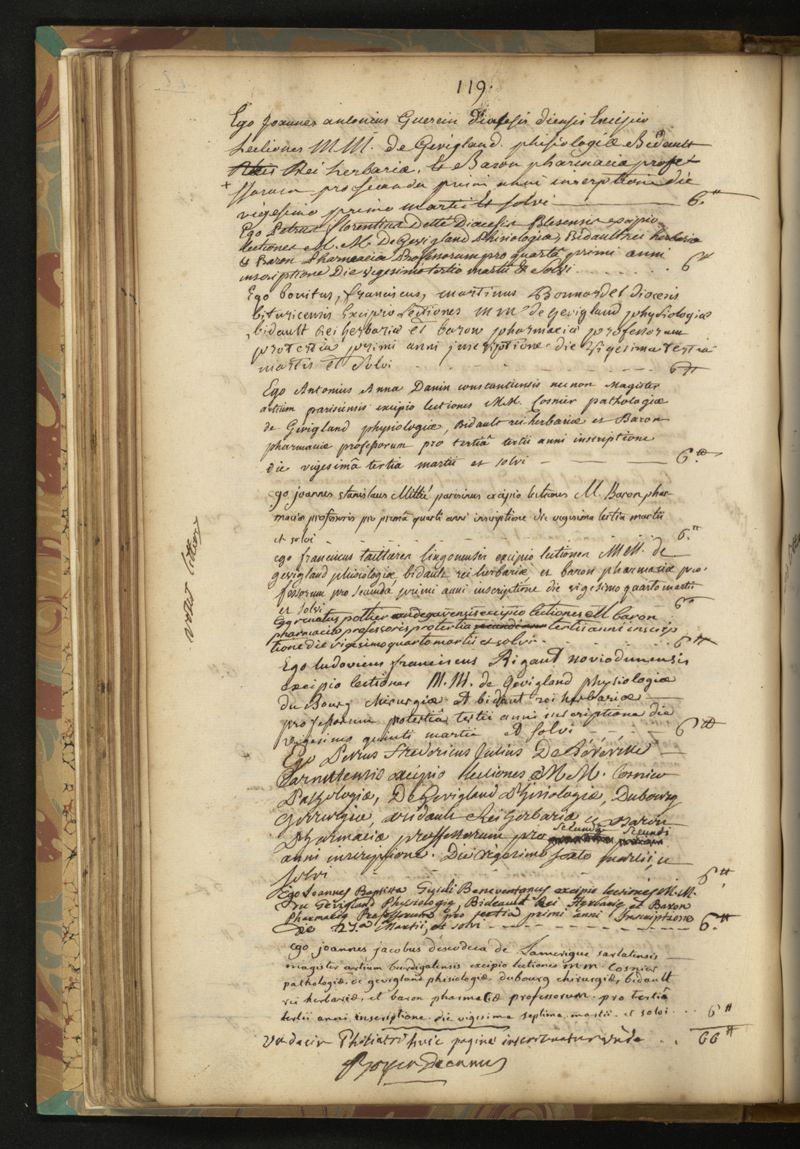 119.
Ego Joannes antonius Guerin diœsis diensis Excipio
Lectiones M.M. de Gevigland physiologiæ Bidault
Rei herbariæ, Et Baron pharmaciæ profe-
+ ssorum pro secunda primi anni inscriptione die
vigesimo primo martii Et solvi 6.tt
Ego Petrus florentinus Dette Diocesis Blesensis excipio
lectiones M.M. De Gevigland Phisiologiæ, Bidault rei herbariæ
et Baron Pharmaciæ Professorum pro quartâ primi anni
inscriptione Die vigesimo tertio martii & Solvi 6tt
Ego bonitus, franciscus, martinus Bonnardet diocesis
bituricensis Excipio Lectiones m m de gevigland physiologiæ
bidault Rei herbariæ et baron pharmaciæ professorum
pro tertiâ primi anni inscriptione die vigesima tertia
martis et Solvi 6tt
Ego Antonius Anna Danin constantiensis nec non Magister
artium parisiensis excipio lectiones M.M. Cosnier pathologiæ
de Gevigland physiologiæ, Bidault rei herbariæ et Baron
pharmaciæ professorum pro tertiâ tertii anni inscriptione
die vigesimâ tertia martii et solvi 6.tt
ego joannes stanislaus Mittié parisinus excipio lectiones M. Baron phar-
maciæ professoris pro primâ quarti anni inscriptione die vigesima tertia martii
et solvi 6.tt
ego franciscus taillerer lingonensis excipio lectiones M.M. de
gevigland phisiologiæ, bidault rei herbariæ et baron pharmaciæ pro-
fessorum pro secundâ primi anni inscriptione die vigesimo quarto martii
et solvi 6tt
Ego renatus pothier andegavensis excipio lectiones M baron
pharmaciæ professoris pro tertia tertii anni inscrip
tione die vigesimo quarto martii et solvi 6tt
Ego ludovicus franciscus Rigaut noviodunensis
excipio lectiones M.M. de Gevigland physiologiæ
du Bourg chirurgiæ et bidaut rei herbariæ
professorum pro tertiâ tertii anni inscriptione die
vigesimo quinti martii et solvi 6tt
Ego Petrus Fredericus Julius De
Carnutensis excipio Lectiones M.M. Cosnier
Pathologiæ, De Gevigland Phisiologiæ, Dubourg
Chirurgiæ, Bidault Rei herbariæ et Baron
Pharmaciæ professorum pro secundâ secundi
anni inscriptione. Die vigesimo sexto martii, et
solvi 6tt
Ego Joannes Baptista Guidi Beneventanus excipio lectiones M.M.
de Gevigland Physiologiæ, Bideault Rei Herbariæ et Baron
Pharmaciæ Professorum pro tertia primi anni Inscriptione
Martii, et solvi 6.tt
ego joannes jacobus de Lamerigue sarlatensis
magister artium burdigalensis excipio lectiones m.m. Cosnier
pathologiæ, de gevigland phisiologiæ, dubourg chirurgiæ, bidault
rei herbariæ, et baron pharmaciæ professorum. pro tertiâ
tertii anni inscriptione. die vigesima septima martii. et solvi 6tt
Undecim Philiatri huic paginæ inscribuntur unde 66tt
Boyer Decanus